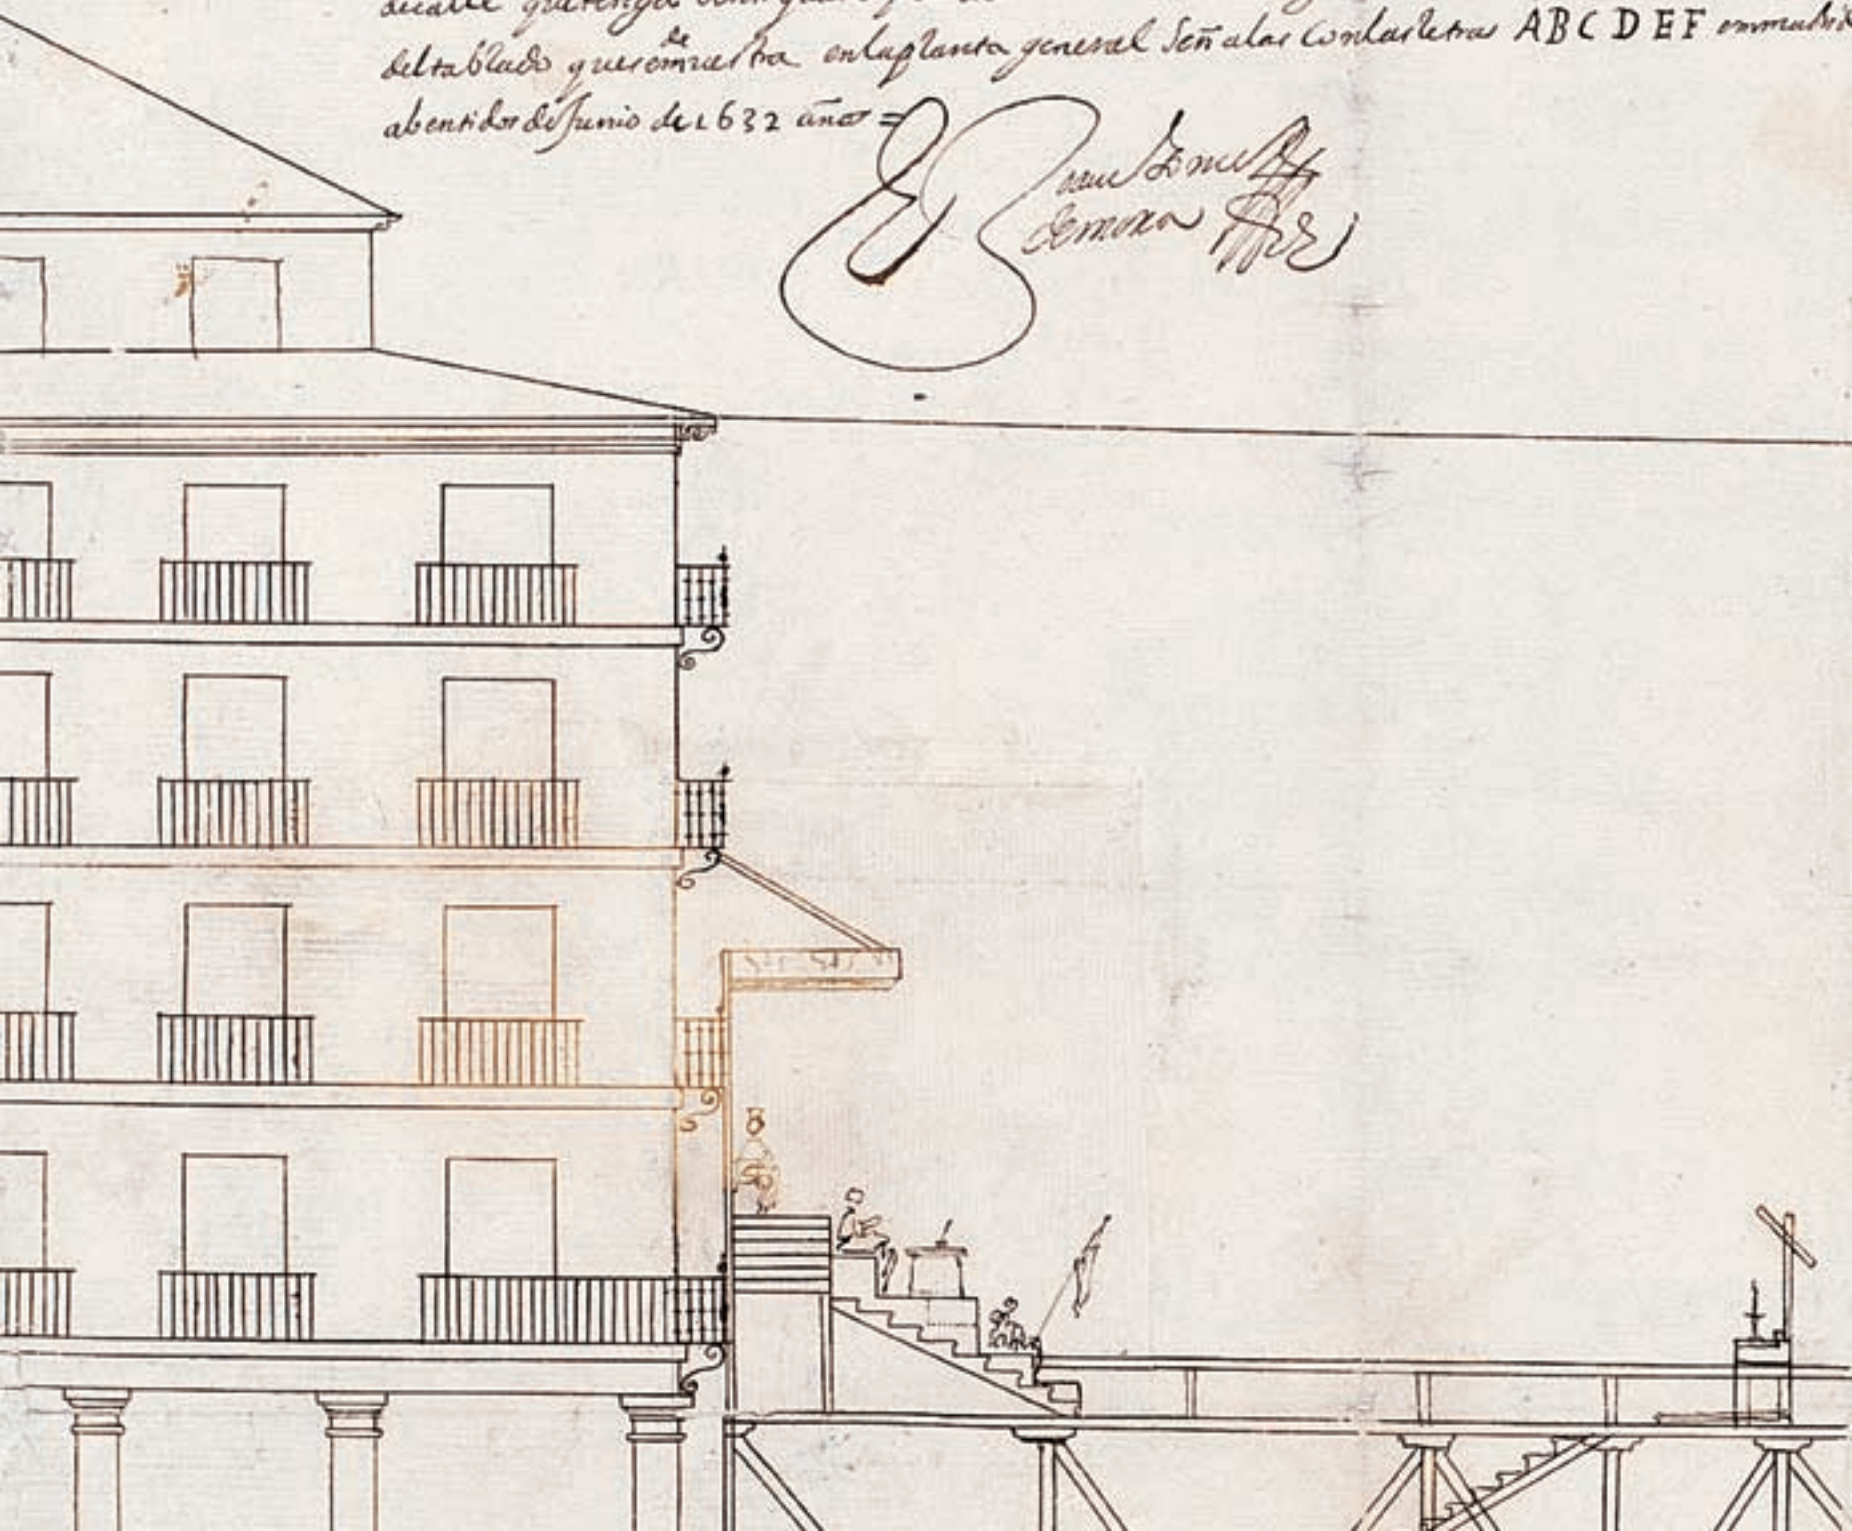 de calle que tenga
del tablado que de muestra en la planta general Señalas Con las letras A B C D E F en madrid
a benti dos de Junio de 1632 años =
Juan Gomez
de mora